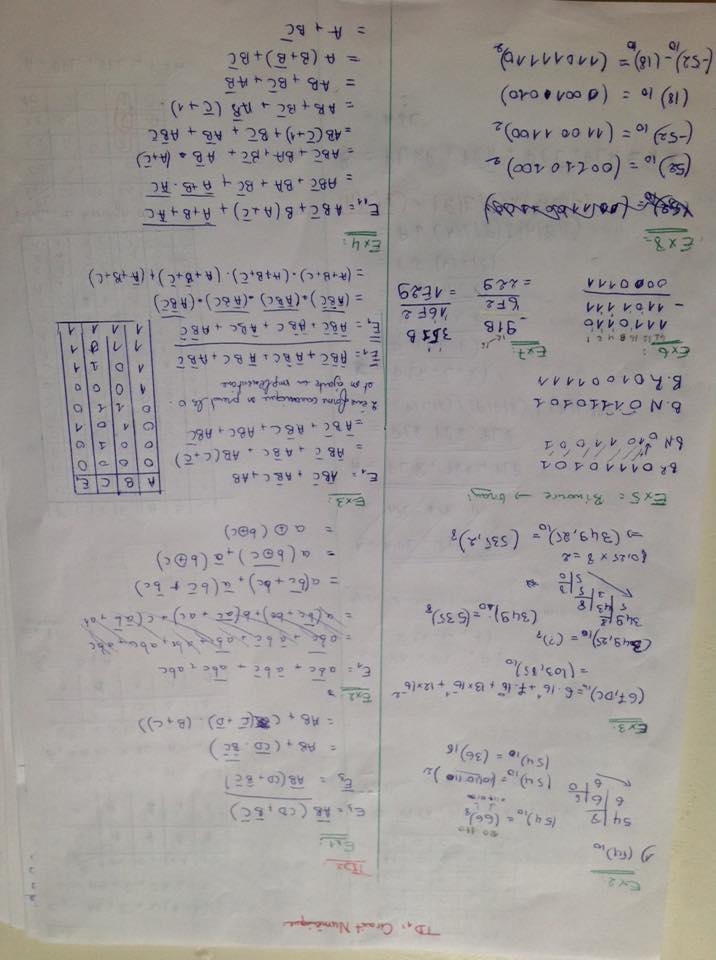 TD1: Circuit Numérique
Ex2:
1) (54)₁₀
54 | 8
6 | 6 | 8
6 | 0
(54)₁₀ = (66)₈
110 110
(54)₁₀ = (110110)₂
(54)₁₀ = (36)₁₆
Ex3:
(67,DC)₁₆ = 6·16¹ + 7·16⁰ + 13×16⁻¹ + 12×16⁻²
= (103,85)₁₀
(349,25)₁₀ = (?)₈
349 | 8
5 | 43 | 8
3 | 5 | 8
5 | 0
(349)₁₀ = (535)₈
0,25 × 8 = 2
⇒ (349,25)₁₀ = (535,2)₈
Ex5: Binaire → Gray
B.R 0 1 1 1 0 1 0 1
B.N 0 1 0 1 1 0 0 1
B.N 0 1 1 1 0 1 0 1
B.R 0 1 0 0 1 1 1 1
Ex6:
1110110
- 1101111
0000111
Ex7:
91B
- 6F2
= 229
3 1 B
16F2
= 1E29
Ex8:
(52)₁₀ = (00110100)₂
(-52)₁₀ = (11001100)₂
(18)₁₀ = (00010010)
(-52)₁₀ - (18)₁₀ = (11011110)₂
TD2
Ex1:
E₃ = A̅B̅ (CD + B̅C̅)
E̅₃ = A̅B̅ (CD + B̅C̅)
= AB + (C̅D̅ · B̅C̅)
= AB + ((C̅ + D̅) · (B + C))
Ex2:
E₁ = ab̅c̅ + a̅bc̅ + a̅b̅c + abc
= a(b̅c̅ + bc) + a̅(bc̅ + b̅c)
= a(b⊕c) + a̅(b⊕c)
= a ⊕ (b⊕c)
Ex3:
E₁ = A̅BC̅ + AB̅C + AB
= A̅BC̅ + AB̅C + AB(C + C̅)
= A̅BC̅ + AB̅C + ABC + ABC̅
2ème forme canonique on prend les 0
et on ajoute un complémentaire
E̅₁ = A̅B̅C̅ + A̅B̅C + A̅BC + AB̅C̅
E̅₁ = A̅B̅C̅ + A̅B̅C + A̅BC + AB̅C̅
= (A̅B̅C̅) · (A̅B̅C) · (A̅BC) · (AB̅C̅)
= (A+B+C) · (A+B+C̅) · (A+B̅+C̅) + (A̅+B+C)
A B C E₁
0 0 0 0
0 0 1 0
0 1 0 1
0 1 1 0
1 0 0 0
1 0 1 1
1 1 0 1
1 1 1 1
Ex4:
E₁₁ = ABC̅ + B(A + C̅) + A̅ + B + A̅C̅
= ABC̅ + BA + BC̅ + A̅ + B · A̅C̅
= ABC̅ + BA + BC̅ + AB̅ · (A + C̅)
= AB(C̅+1) + BC̅ + AB̅ + AB̅C̅
= AB + BC̅ + AB̅ (C̅+1)
= AB + BC̅ + AB̅
= A (B + B̅) + BC̅
= A + BC̅